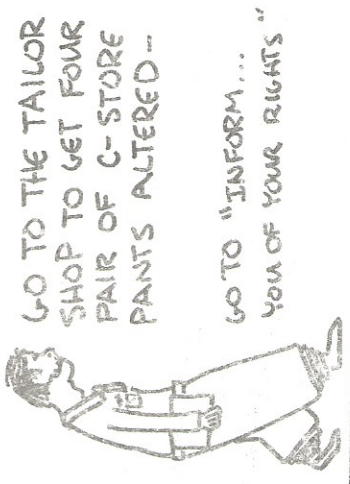 GO TO THE TAILOR
SHOP TO GET FOUR
PAIR OF C-STORE
PANTS ALTERED--
GO TO "INFORM...
YOU OF YOUR RIGHTS"